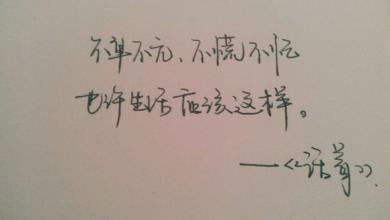 不卑不亢、不慌不忙
也许生活应该这样。
——《活着》